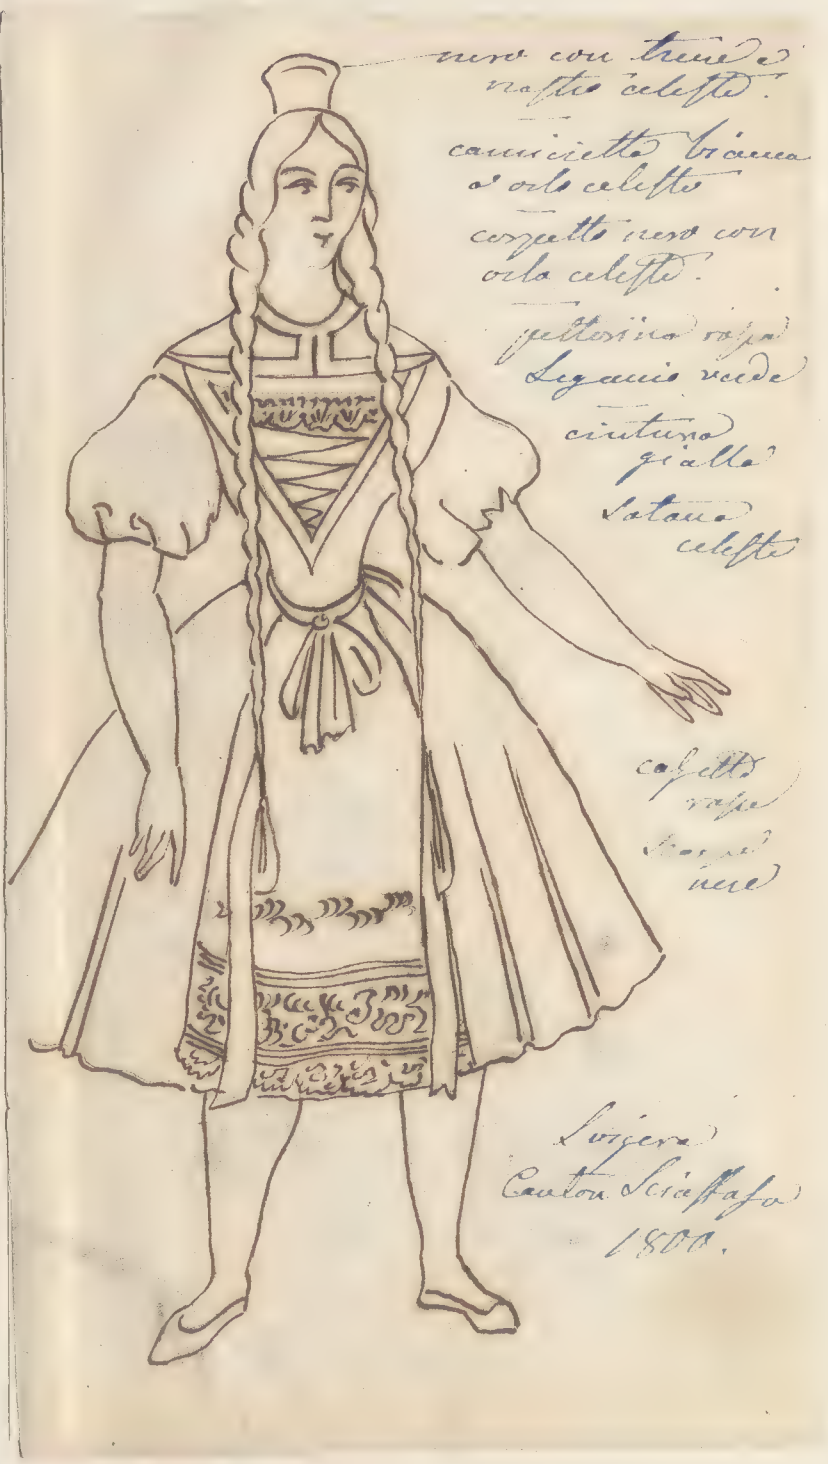 nero con trine e
nastro celeste.
camicietta bianca
a orlo celeste
corpetto nero con
orlo celeste.
pettorina rosa
Legamio verde
cintura
gialla
Sotana
celeste
calzette
rosse
scarpe
nere
Svizera
Canton Sciaffusa
1800.